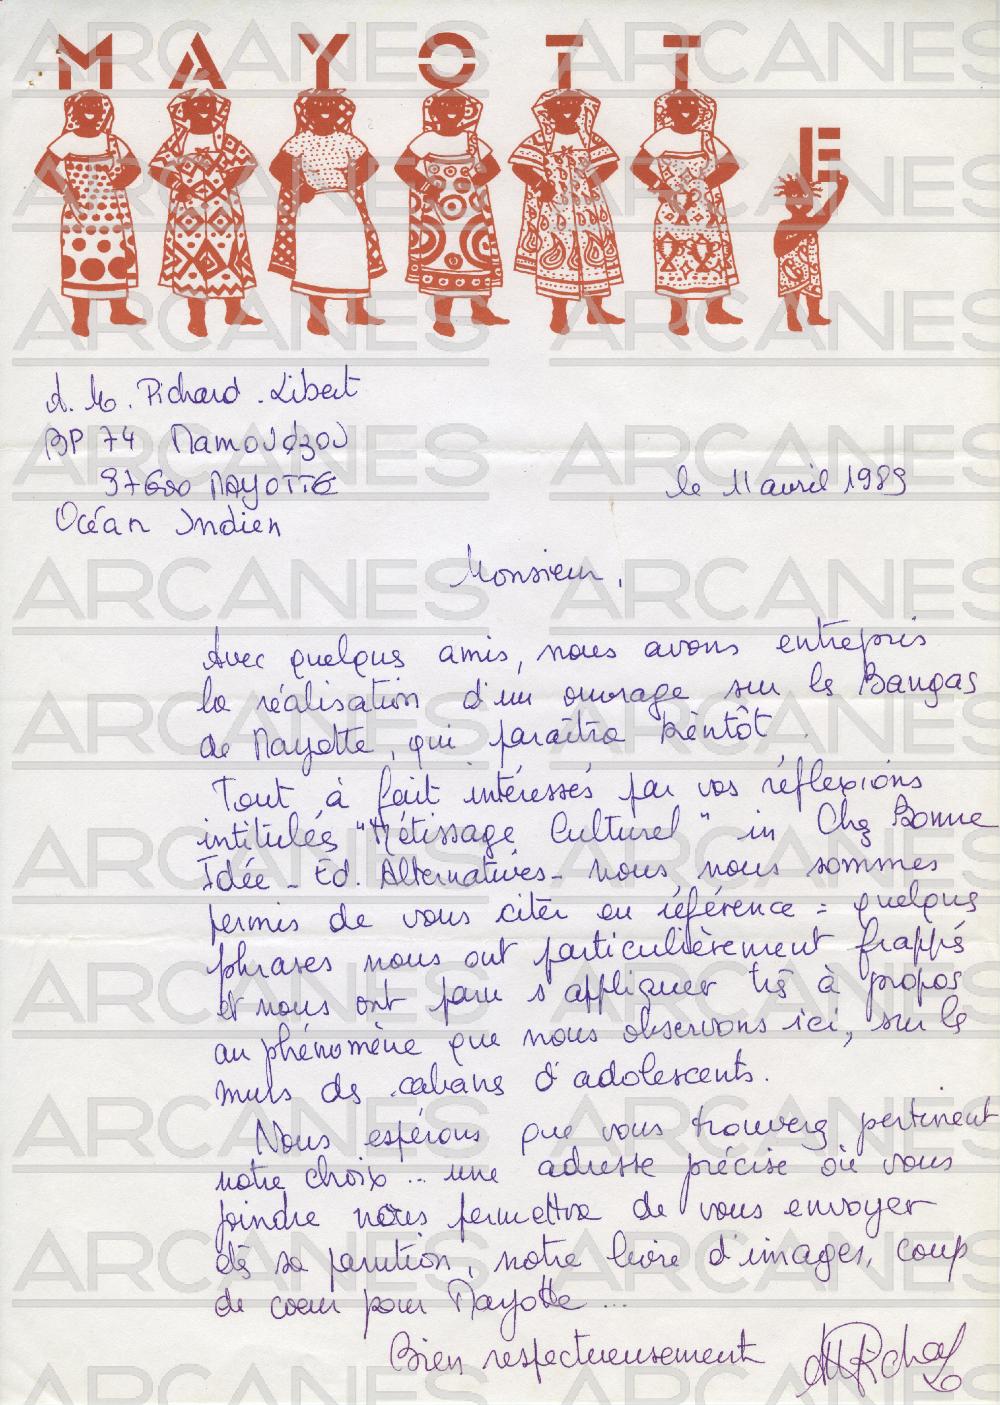 MAYOTTE
A. M. Richard-Libert
BP 74 Mamoudzou
97600 MAYOTTE
Océan Indien
le 11 avril 1989
Monsieur,
Avec quelques amis, nous avons entrepris
la réalisation d'un ouvrage sur les Bangas
de Mayotte, qui paraîtra bientôt.
Tout à fait intéressés par vos réflexions
intitulées "Métissage Culturel" in Chez Bonne
Idée - Ed. Alternatives - nous nous sommes
permis de vous citer en référence : quelques
phrases nous ont particulièrement frappés
et nous ont paru s'appliquer très à propos
au phénomène que nous observons ici, sur les
murs des cabanes d'adolescents.
Nous espérons que vous trouverez pertinent
notre choix... une adresse précise où vous
joindre nous permettra de vous envoyer
dès sa parution, notre livre d'images, coup
de coeur pour Mayotte...
Bien respectueusement
AMRichard
ARCANES